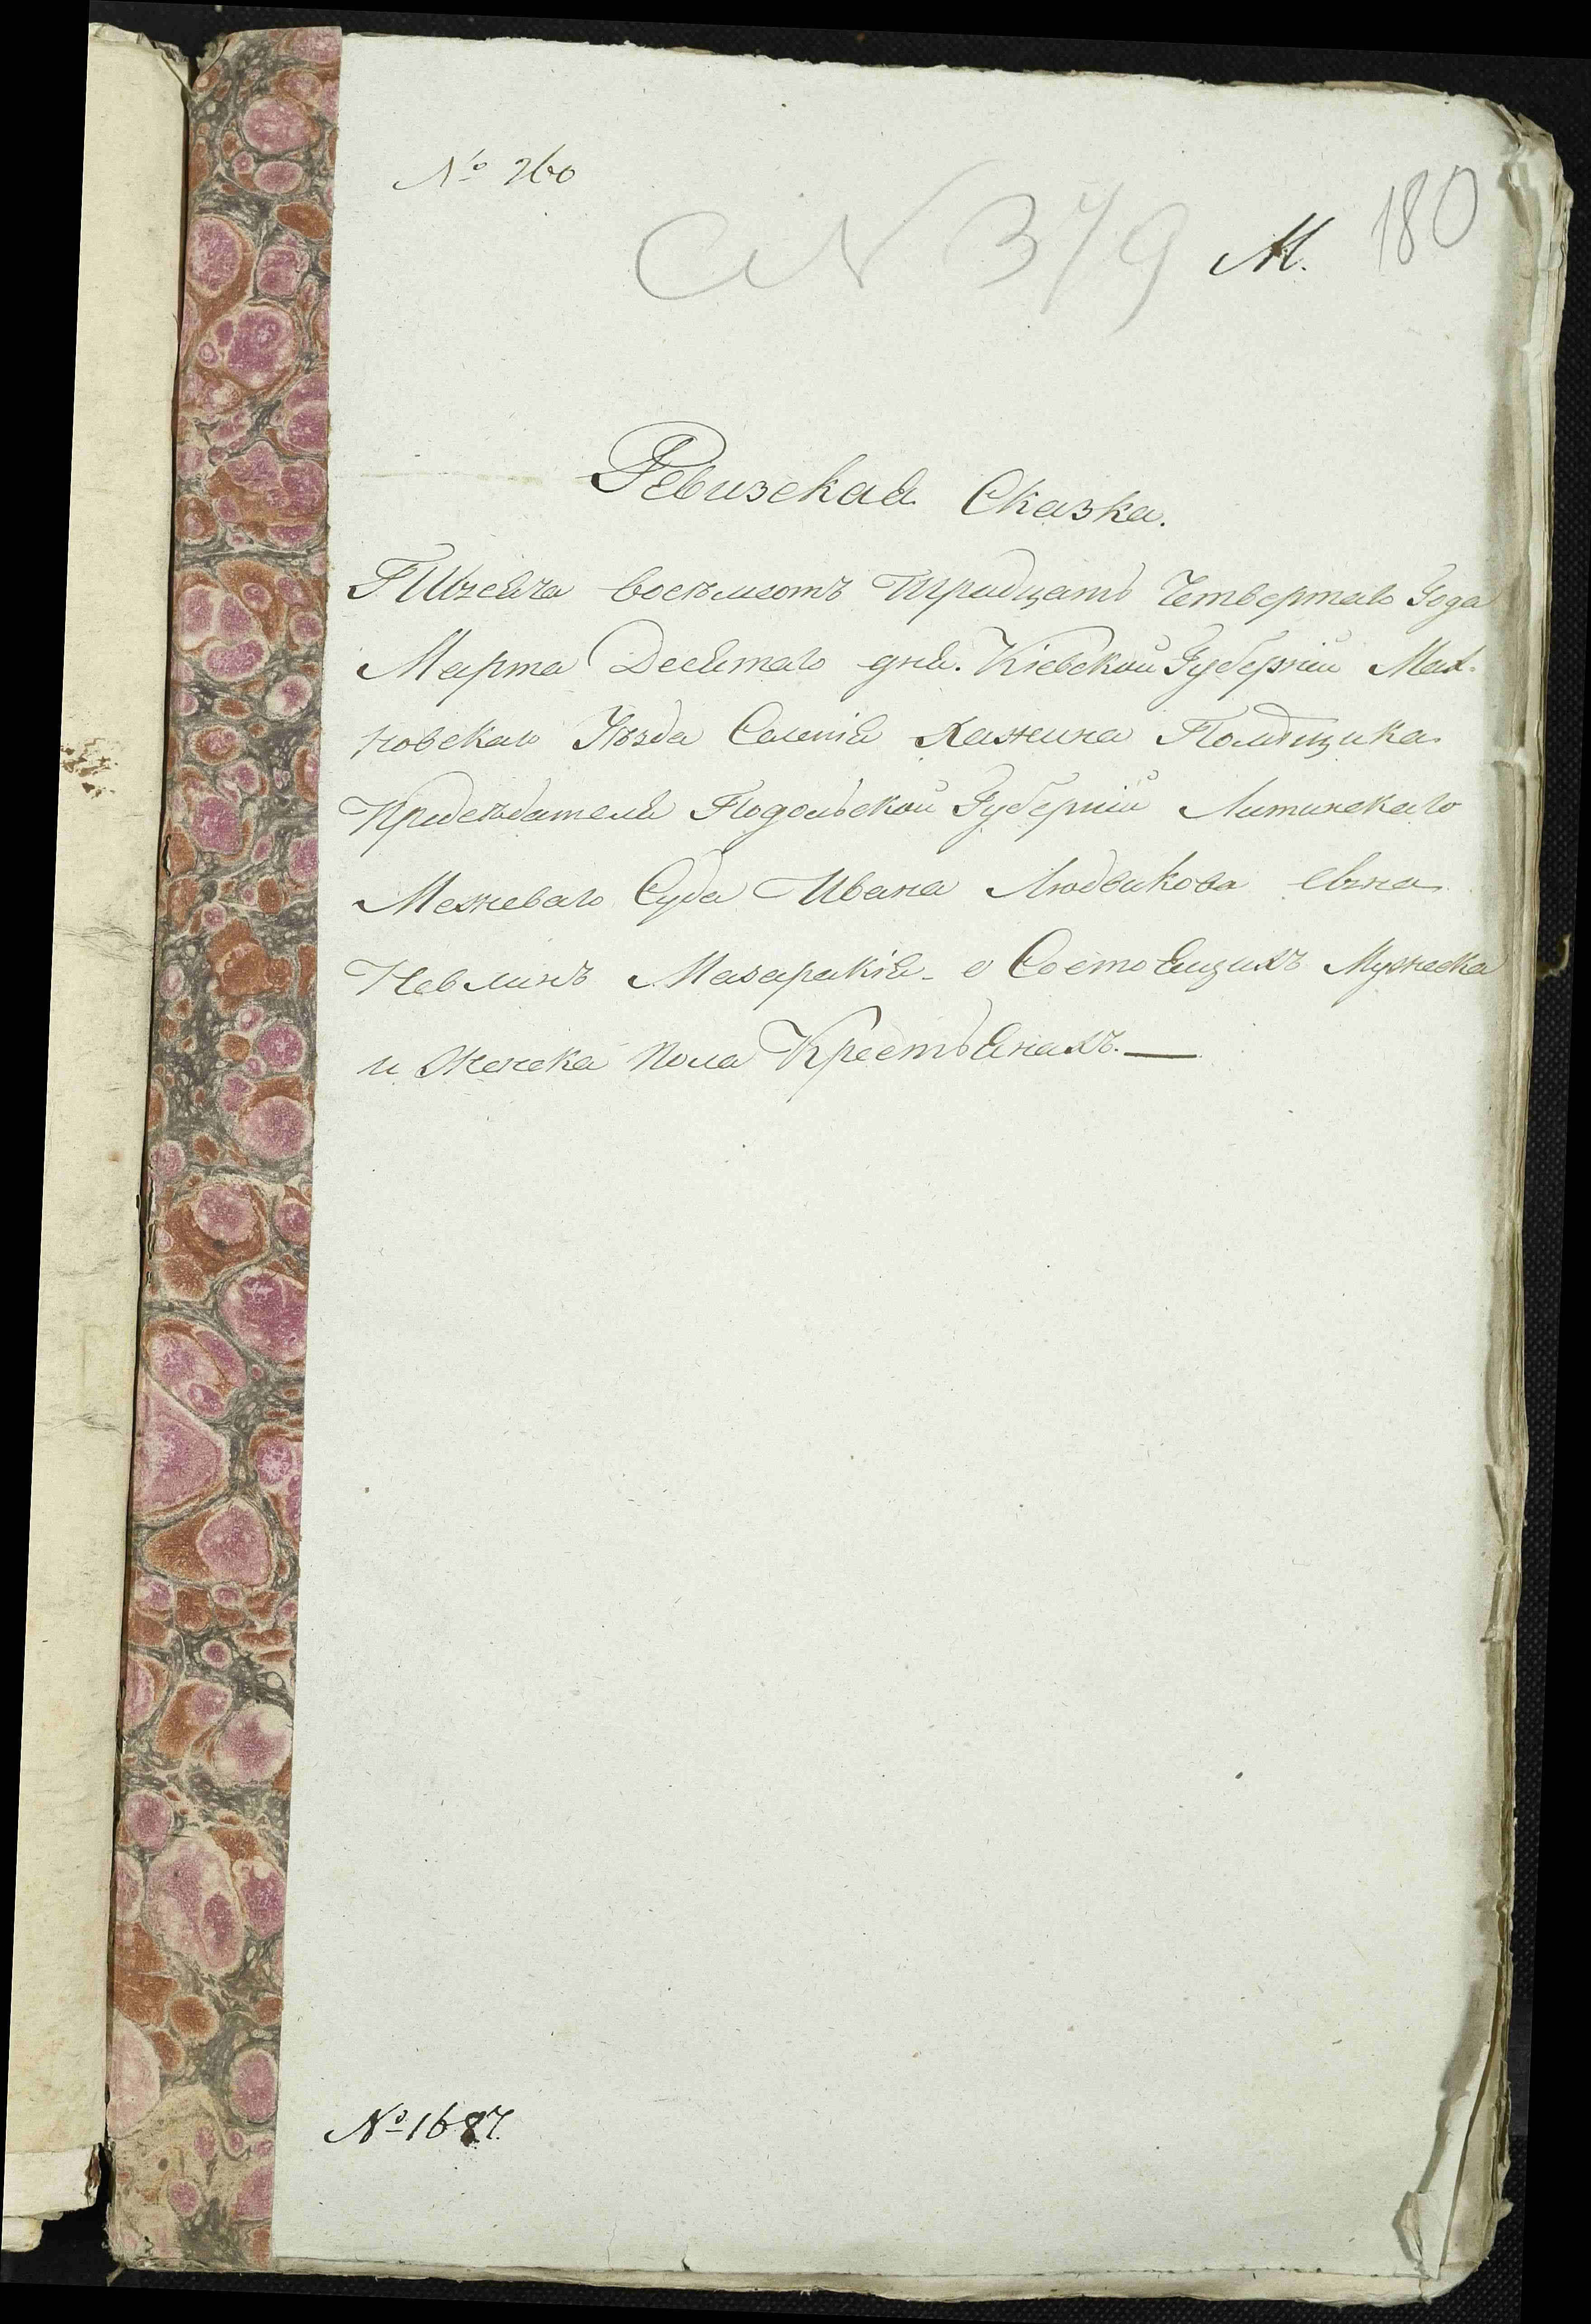 № 260
N 379 М. 180
Ревизская Сказка.
Тысяча восемсотъ Тридцать Четвертаго Года
Марта Десятаго дня. Кіевской Губерніи Мах-
новскаго Уѣзда Селенія Хажина Помѣщика
Предсѣдателя Подольской Губерніи Литинскаго
Межеваго Суда Ивана Людвикова сына
Невлинъ Мазаракія о Состоящихъ Мужеска
и Женска пола Крестьянахъ.—
№ 1687.